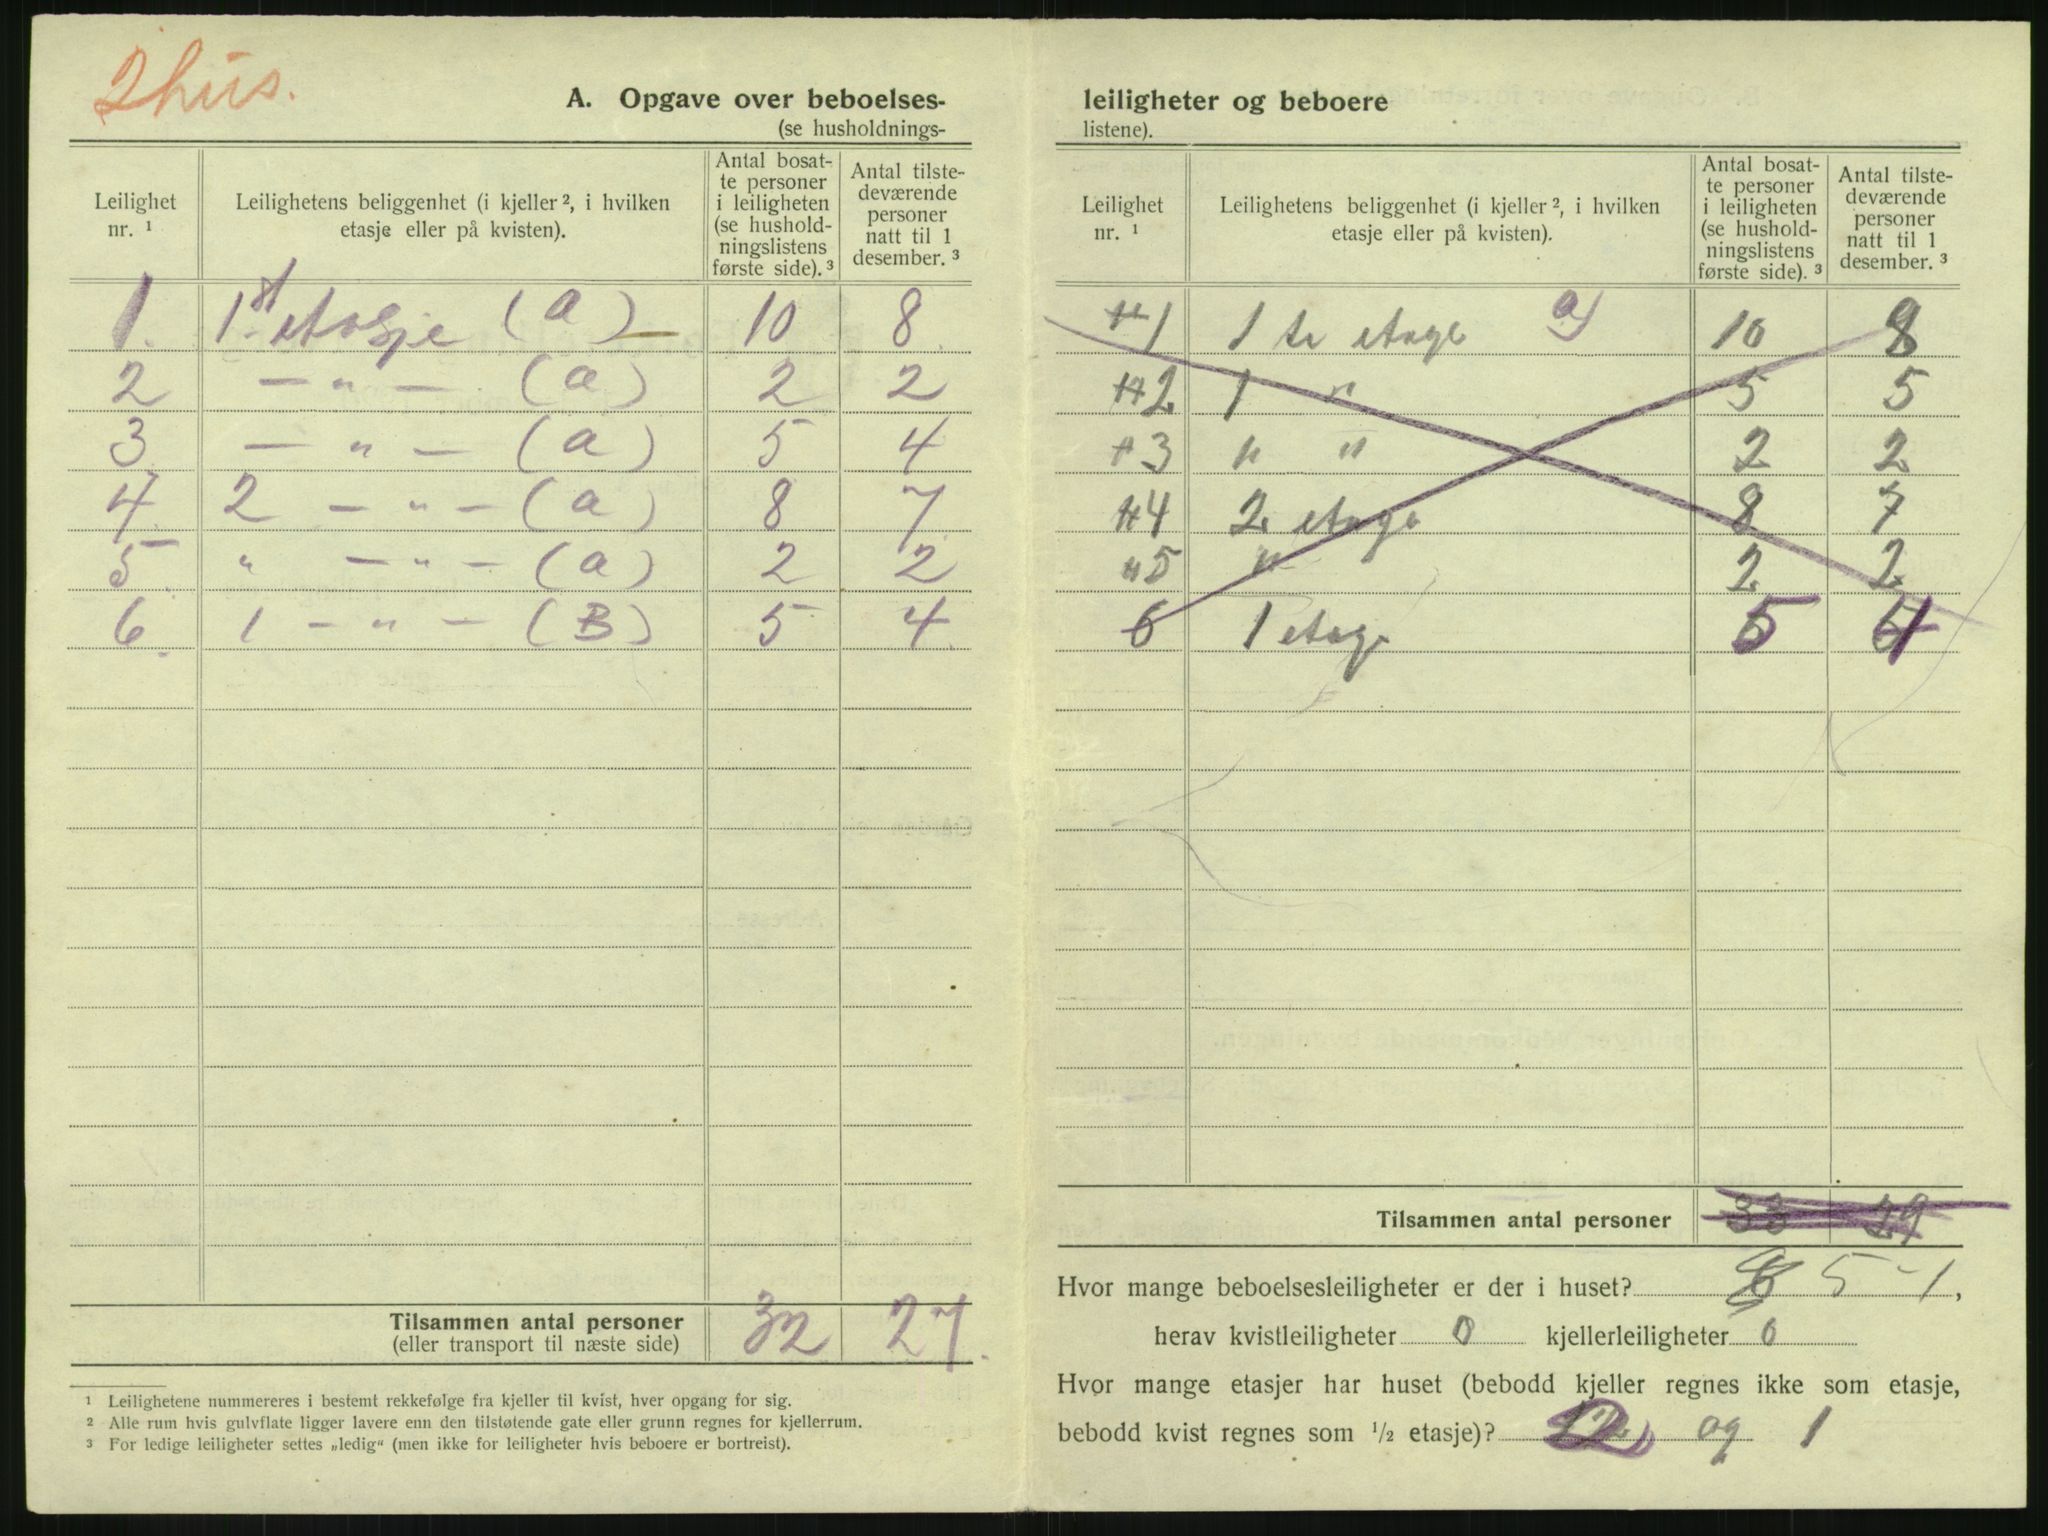 2 hus.
A. Opgave over beboelses-
(se husholdnings-
Leilighet nr. ¹ | Leilighetens beliggenhet (i kjeller ², i hvilken etasje eller på kvisten). | Antal bosatte personer i leiligheten (se husholdningslistens første side). ³ | Antal tilstedeværende personer natt til 1 desember. ³
1. 1st etasje (a) 10 8.
2 — " — (a) 2 2
3 — " — (a) 5 4
4. 2 — " — (a) 8 7
5. " — " — (a) 2 2
6. 1 — " — (B) 5 4.
Tilsammen antal personer 32 27.
(eller transport til næste side)
¹ Leilighetene nummereres i bestemt rekkefølge fra kjeller til kvist, hver opgang for sig.
² Alle rum hvis gulvflate ligger lavere enn den tilstøtende gate eller grunn regnes for kjellerrum.
³ For ledige leiligheter settes „ledig“ (men ikke for leiligheter hvis beboere er bortreist).
leiligheter og beboere
listene).
Leilighet nr. ¹ | Leilighetens beliggenhet (i kjeller ², i hvilken etasje eller på kvisten). | Antal bosatte personer i leiligheten (se husholdningslistens første side). ³ | Antal tilstedeværende personer natt til 1 desember. ³
1 1 te etage a) 10 8
2 1 " 5 5
3 " " 2 2
4 2. etage 8 7
" 5 " 2 2
6 1 etage 5 4
Tilsammen antal personer 33 29
Hvor mange beboelsesleiligheter er der i huset? 6 5 - 1,
herav kvistleiligheter 0 kjellerleiligheter 0
Hvor mange etasjer har huset (bebodd kjeller regnes ikke som etasje,
bebodd kvist regnes som ½ etasje)? 2 og 1